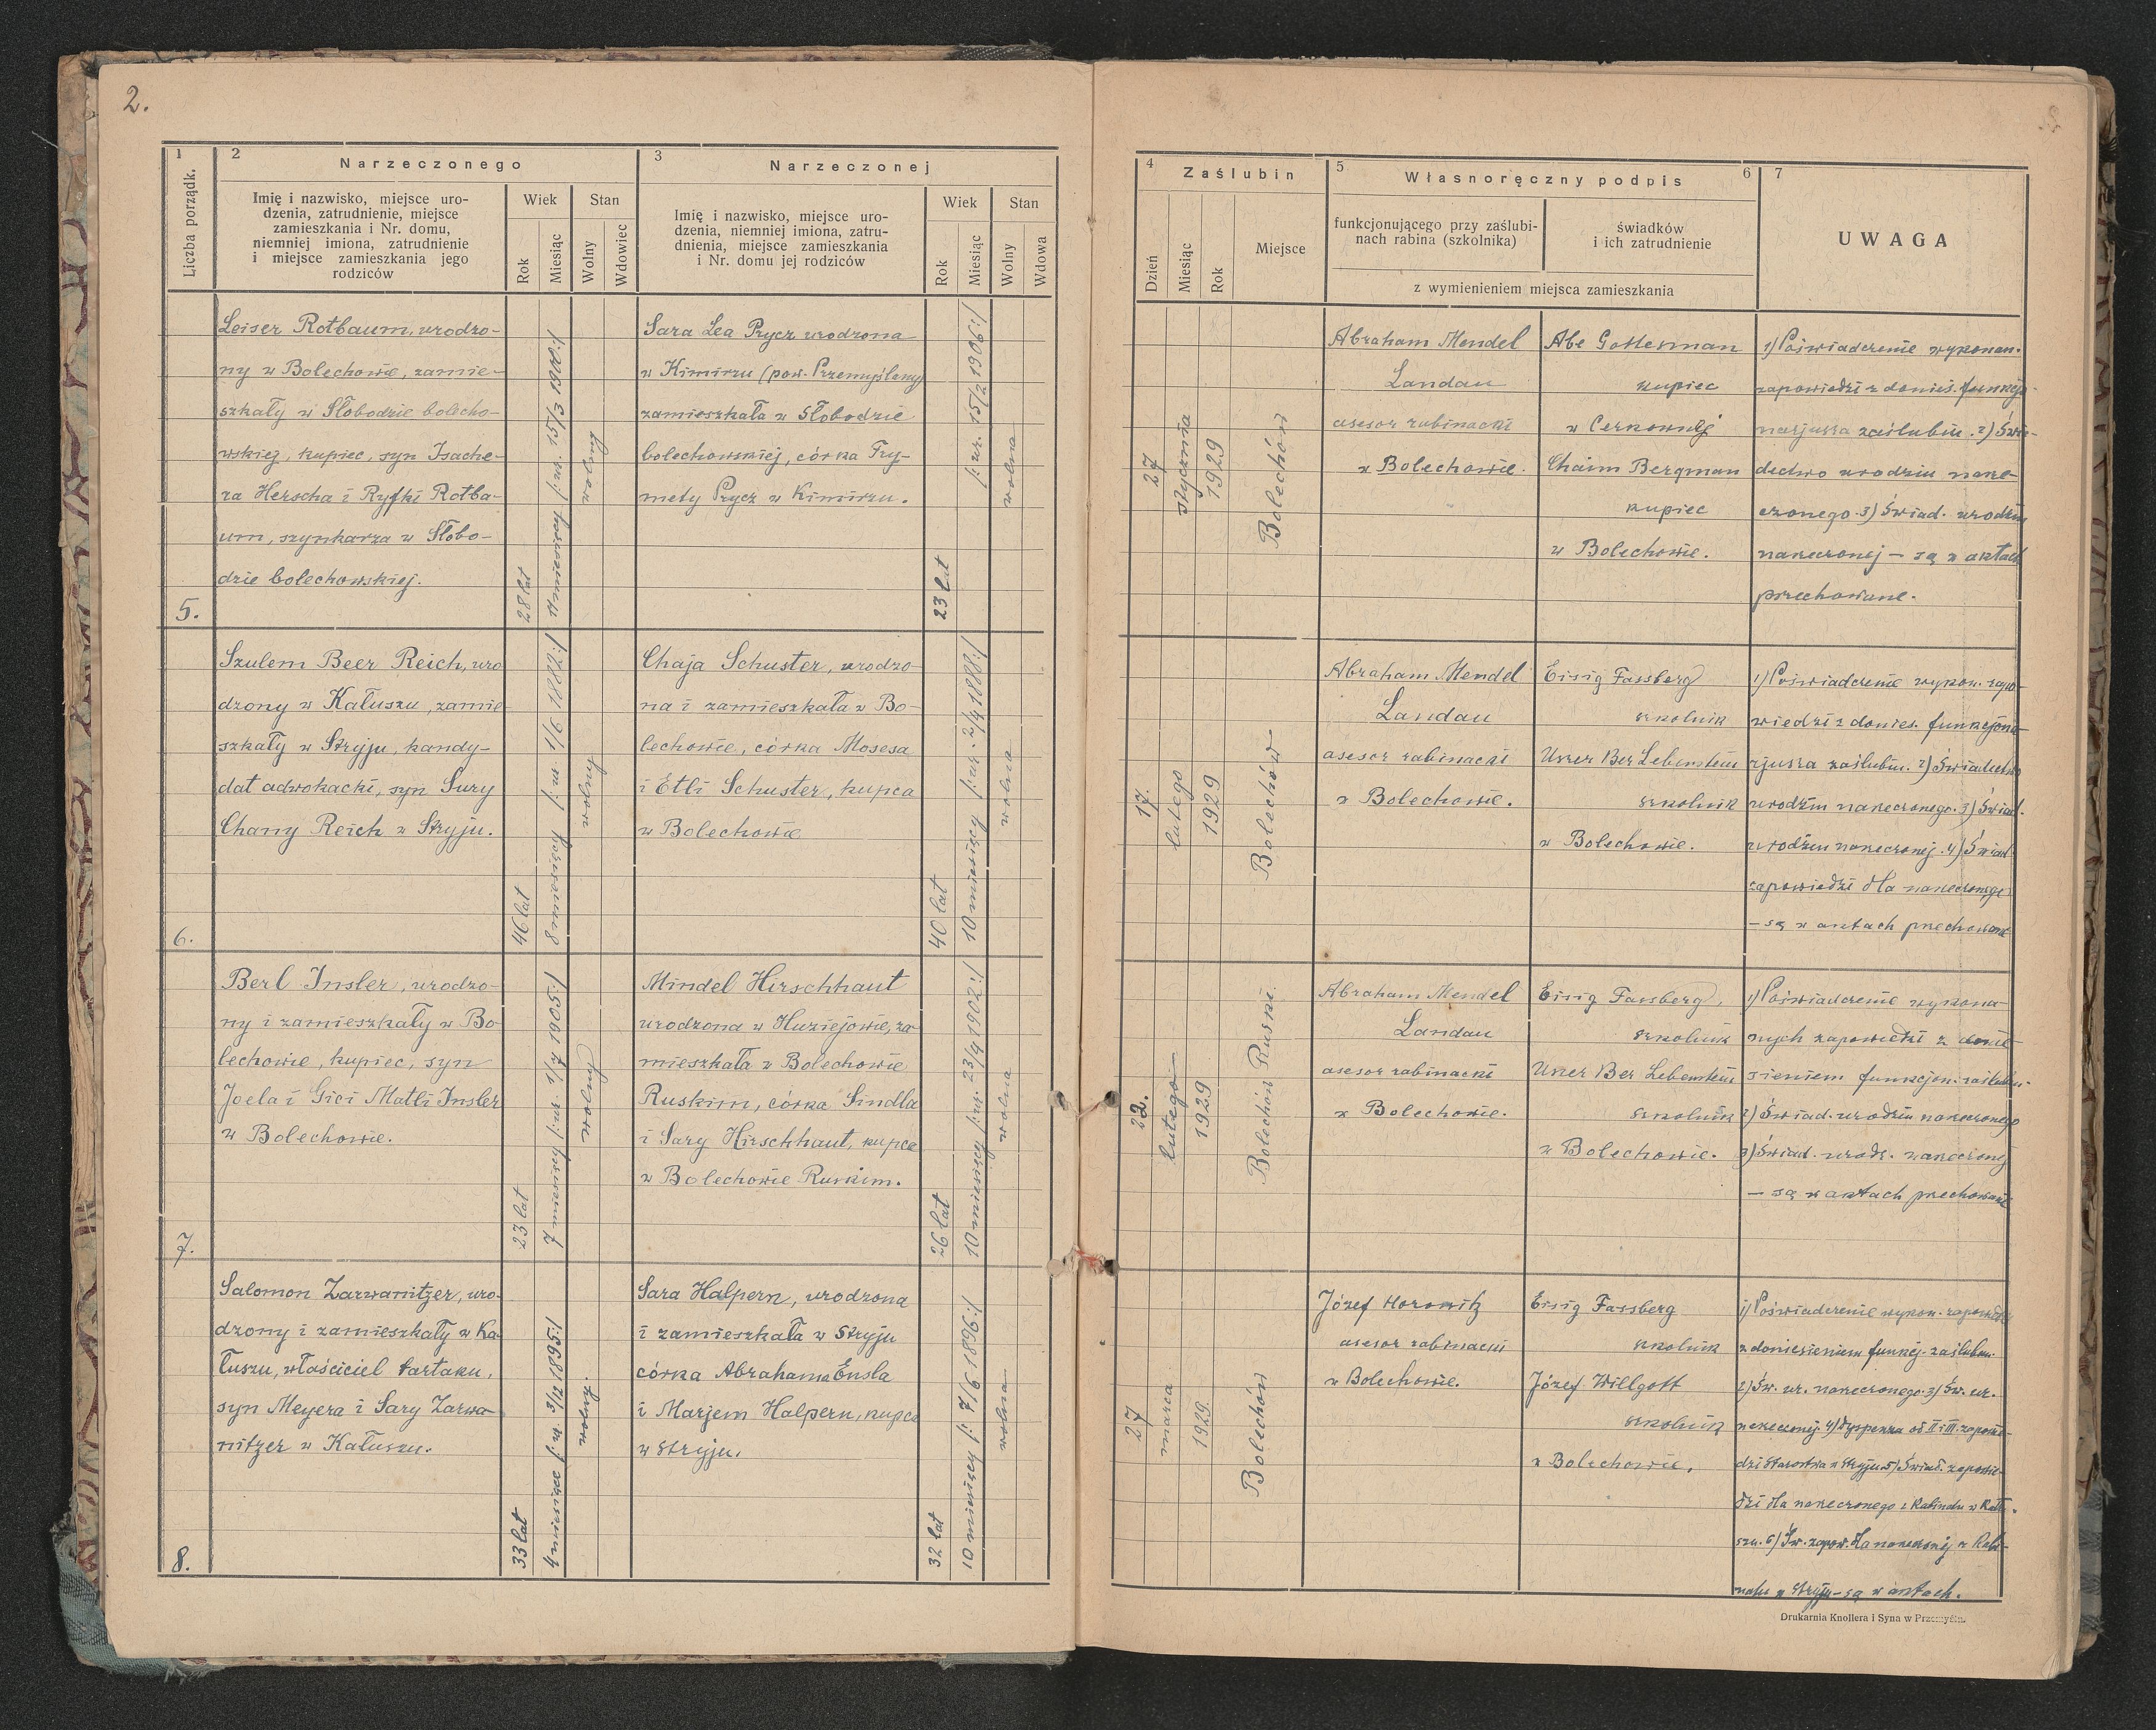 2.
1
2
Narzeczonego
3
Narzeczonej
Liczba porządk.
Imię i nazwisko, miejsce uro-
dzenia, zatrudnienie, miejsce
zamieszkania i Nr. domu,
niemniej imiona, zatrudnienie
i miejsce zamieszkania jego
rodziców
Wiek
Rok
Miesiąc
Stan
Wolny
Wdowiec
Imię i nazwisko, miejsce uro-
dzenia, niemniej imiona, zatru-
dnienia, miejsce zamieszkania
i Nr. domu jej rodziców
Wiek
Rok
Miesiąc
Stan
Wolny
Wdowa
5.
Leiser Rotbaum, urodzo-
ny w Bolechowie, zamie-
szkały w Słobodzie bolecho-
wskiej, kupiec, syn Isache-
ra Herscha i Ryfki Rotba-
um, szynkarza w Słobo-
dzie bolechowskiej.
28 lat
(: ur. 15/3 1900:)
wolny
Sara Lea Prycz urodzona
w Kimirzu (pow. Przemyślany)
zamieszkała w Słobodzie
bolechowskiej, córka Fry-
mety Prycz w Kimirzu.
23 lat
(: ur. 15/2 1906:)
wolna
6.
Szulem Beer Reich, uro
dzony w Kałuszu, zamie
szkały w Stryju, kandy-
dat adwokacki, syn Sury
Chany Reich w Stryju.
46 lat
8 miesięcy (: ur. 1/6 1882:)
wolny
Chaja Schuster, urodzo-
na i zamieszkała w Bo-
lechowie, córka Mosesa
i Etli Schuster, kupca
w Bolechowie
40 lat
10 miesięcy (: ur. 2/4 1888:)
wolna
7.
Berl Insler, urodzo-
ny i zamieszkały w Bo-
lechowie, kupiec, syn
Joela i Gici Matli Insler
w Bolechowie.
23 lat
7 miesięcy (: ur. 1/7 1905:)
wolny
Mindel Hirschhaut
urodzona w Huziejowie, za-
mieszkała w Bolechowie
Ruskim, córka Sindla
i Sary Hirschhaut, kupca
w Bolechowie Ruskim.
26 lat
10 miesięcy (: ur. 23/4 1902:)
wolna
8.
Salomon Zarwanitzer, uro-
dzony i zamieszkały w Ka-
łuszu, właściciel tartaku,
syn Meyera i Sary Zarwa-
nitzer w Kałuszu.
33 lat
4 miesiące (: ur. 3/12 1895:)
wolny.
Sara Halpern, urodzona
i zamieszkała w Stryju
córka Abrahama Ensla
i Marjem Halpern, kupca
w Stryju.
32 lat
10 miesięcy (: 7/6 1896:)
wolna
4
Zaślubin
5
Własnoręczny podpis
6
7
Dzień
Miesiąc
Rok
Miejsce
funkcjonującego przy zaślubi-
nach rabina (szkolnika)
świadków
i ich zatrudnienie
z wymienieniem miejsca zamieszkania
UWAGA
27
stycznia
1929
Bolechów
Abraham Mendel
Landau
asesor rabinacki
w Bolechowie.
Abe Gottesman
kupiec
w Cerkownej
Chaim Bergman
kupiec
w Bolechowie.
1) Poświadczenie wykonan.
zapowiedzi z donies. funkcjo-
narjusza zaślubin. 2) Świa-
dectwo urodzin narze-
czonego. 3) Świad. urodzin
narzeczonej — są w aktach
przechowane.
17.
lutego
1929
Bolechów
Abraham Mendel
Landau
asesor rabinacki
w Bolechowie.
Eisig Fassberg
szkolnik
Uszer Ber Lebenstein
szkolnik
w Bolechowie.
1) Poświadczenie wykon. zapo-
wiedzi z donies. funkcjona-
rjusza zaślubin. 2) Świadectwo
urodzin narzeczonego. 3) Świad.
urodzin narzeczonej. 4) Świad.
zapowiedzi dla narzeczonego
— są w aktach przechowane
22.
lutego
1929
Bolechów Ruski.
Abraham Mendel
Landau
asesor rabinacki
w Bolechowie.
Eisig Fassberg,
szkolnik
Uszer Ber Lebenstein
szkolnik
w Bolechowie.
1) Poświadczenie wykona-
nych zapowiedzi z donie-
sieniem funkcjon. zaślubin.
2) Świad. urodzin narzeczonego
3) Świad. urodz. narzeczonej
— są w aktach przechowane
27
marca
1929.
Bolechów
Józef Horowitz
asesor rabinacki
w Bolechowie.
Eisig Fassberg
szkolnik
Józef Willgott
szkolnik
w Bolechowie.
1) Poświadczenie wykon. zapowiedzi
z doniesieniem funkcj. zaślubin.
2) Św. ur. narzeczonego. 3) Św. ur.
narzeczonej. 4) Dyspenza od II i III zapowie-
dzi Starostwa w Stryju. 5) Świad. zapowie-
dzi dla narzeczonego z Rabinatu w Kału-
szu. 6) Św. zapow. dla narzeczonej z Rabi-
natu w Stryju — są w aktach.
Drukarnia Knollera i Syna w Przemyślu.